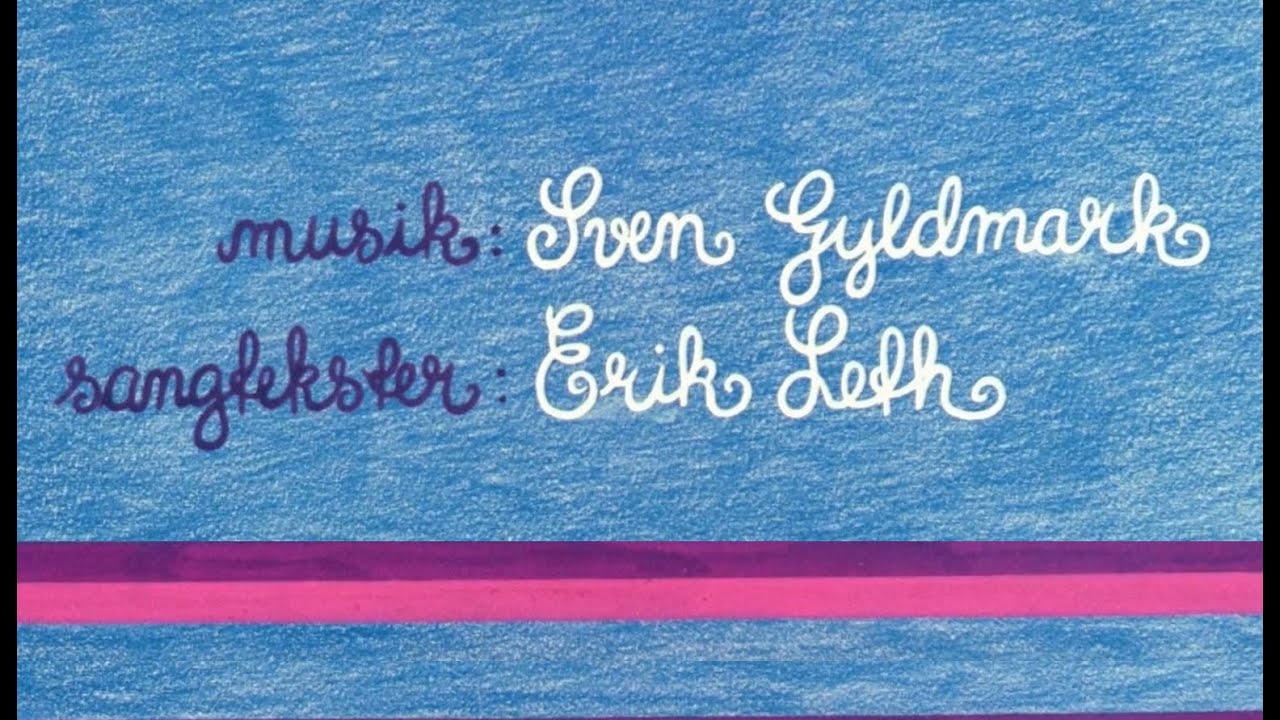 musik: Sven Gyldmark
sangtekster: Erik Leth